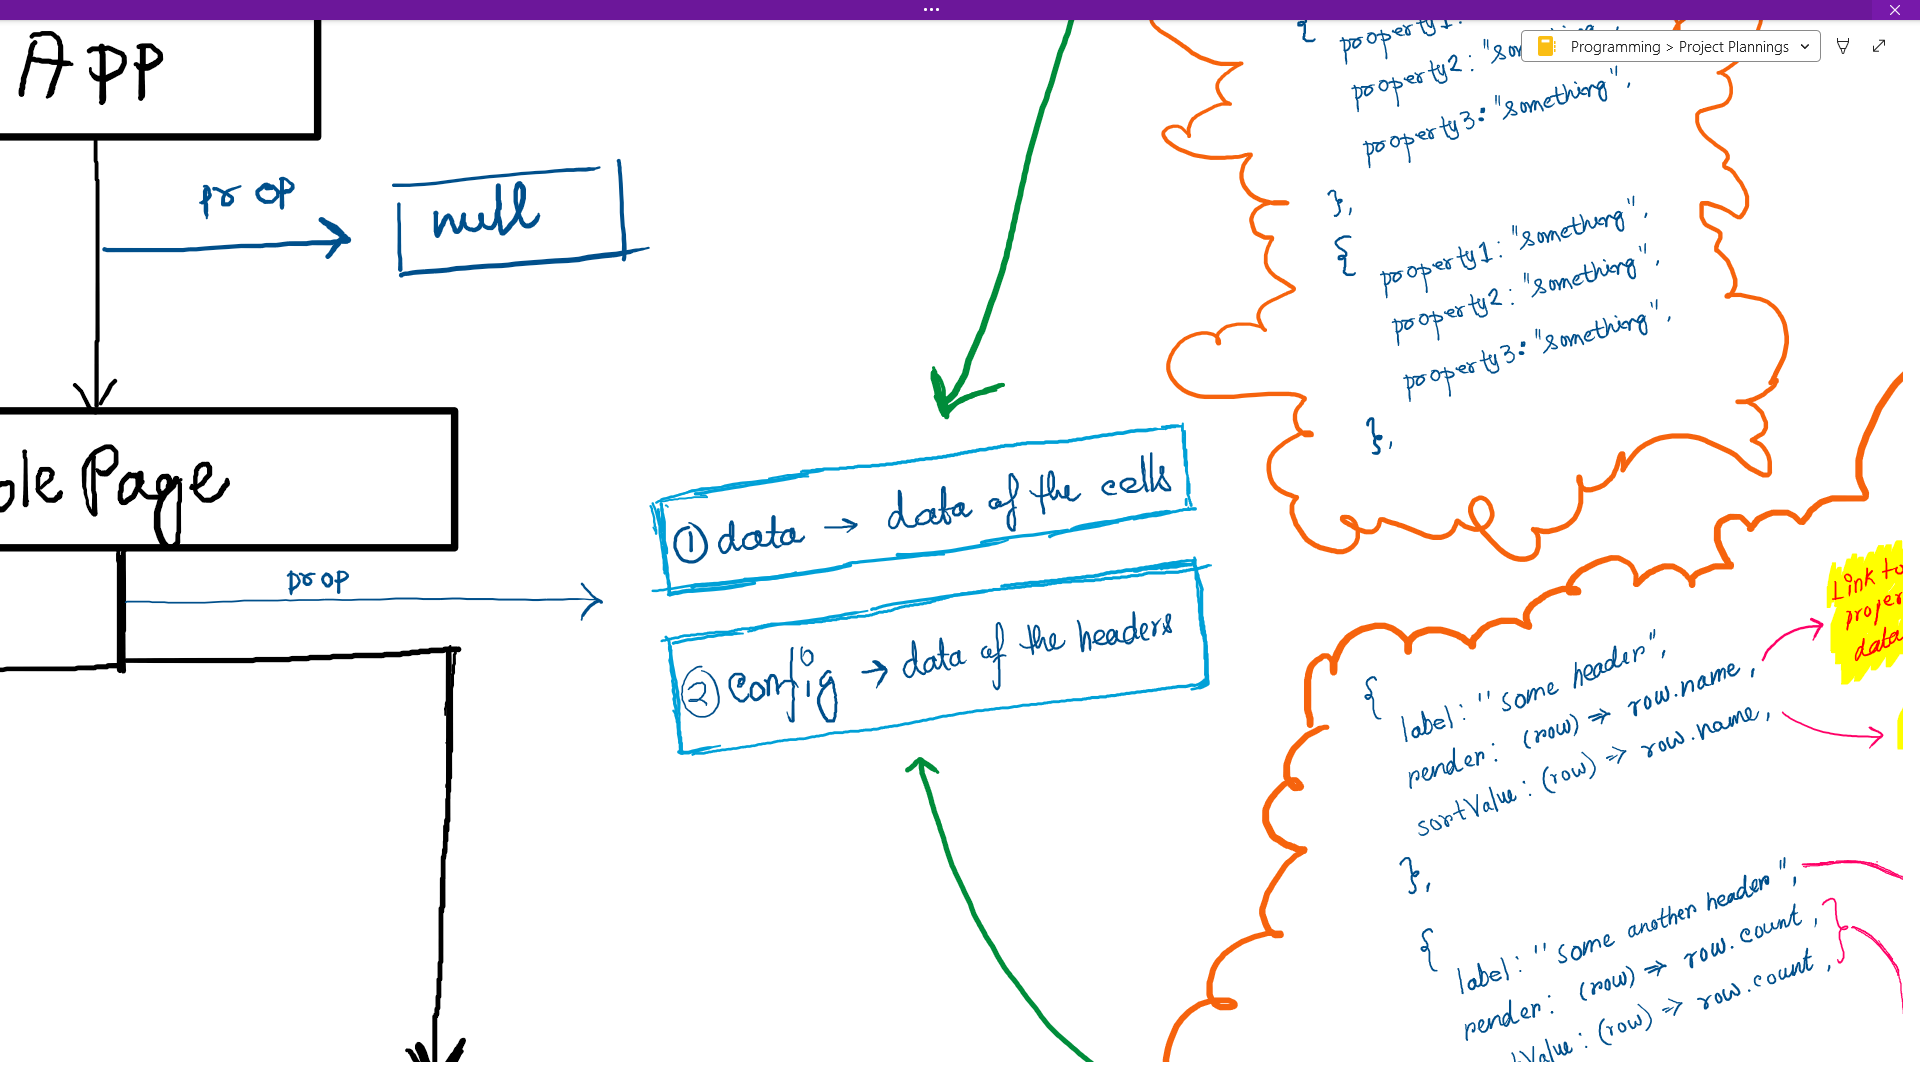 Programming > Project Plannings
App
prop
null
ole Page
prop
① data → data of the cells
② config → data of the headers
{
property1:
property2: "so
property3: "something",
},
{
property1: "something",
property2: "something",
property3: "something",
},
{
label: "some header",
render: (row) => row.name,
sortValue: (row) => row.name,
},
{
label: "some another header",
render: (row) => row.count,
tValue: (row) => row.count,
Link to
proper
data